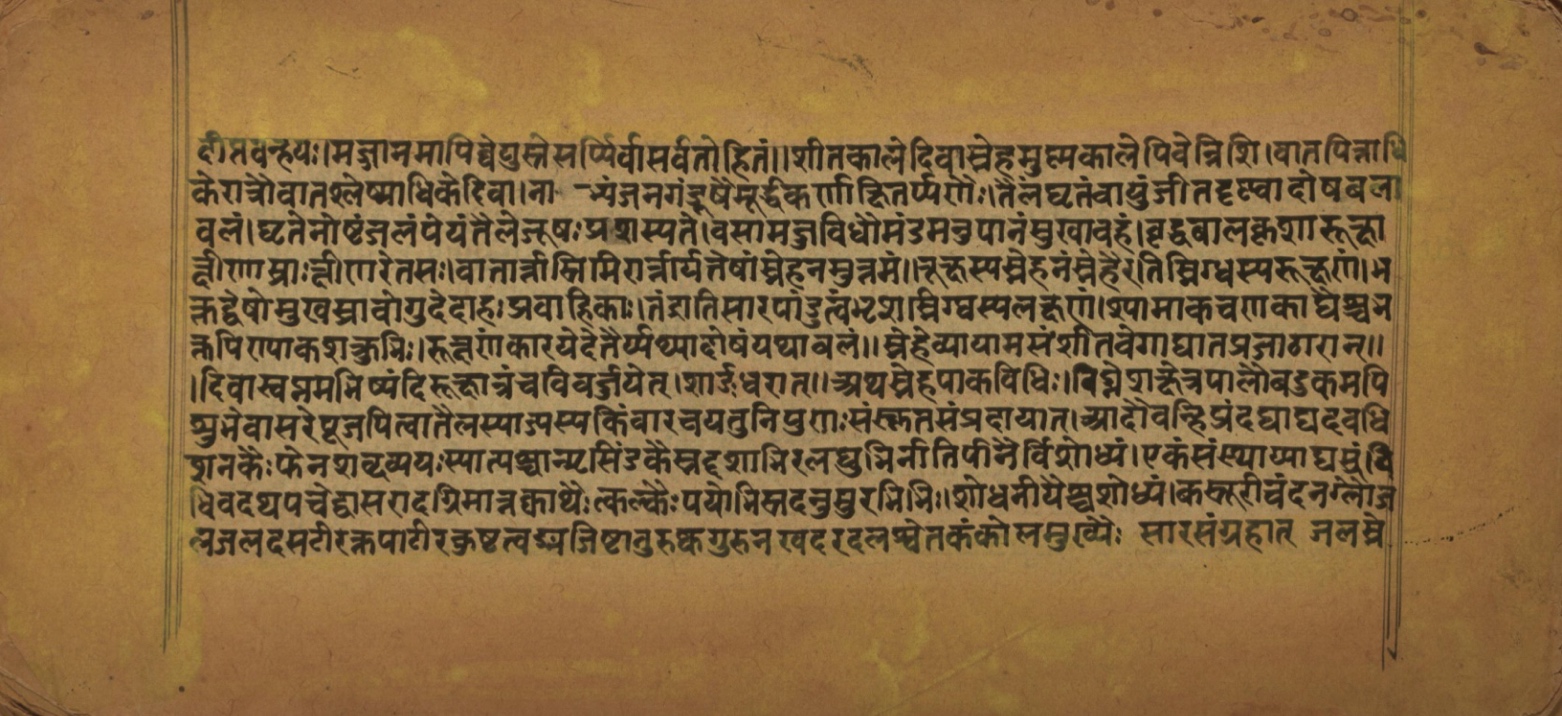 दीप्तवन्हयः।मज्जानमापिबेयुस्तेसर्प्पिर्वासर्वतोहितं।।शीतकालेदिवास्नेहमुष्णकालेपिवेन्निशि।वातपित्ताधि
केरात्रौवातश्लेष्माधिकेदिवा।ना भ्यंजनगंडूषैमूर्द्धकर्णाक्षितर्प्पणैः।तैलंघृतंवायुंजीतदृष्ट्वादोषबला
वलं।घृतेनोष्टंजलंपेयंतैलेजूषःप्रशस्यते।वसामज्जविधौमंडमनुपानंसुखावहं।वृद्धबालकृशारूक्षा
क्षीणास्राःक्षीणरेतसः।वातार्त्तास्तिमिरार्त्तायेतेषांस्नेहनमुत्तमं।।रूक्षस्यस्नेहनंस्नेहैरेतिस्निग्धस्यरूक्षणं।भ
क्तद्वेषोमुखस्रावोगुदेदाहःप्रवाहिकाः।तंद्रातिसारपांडुत्वंभृशस्निग्धस्यलक्षणं।श्यामाकचणकाद्यैश्चभ
क्तपिण्पाकशक्तुभिः।रूक्षणंकारयेदेतैर्य्यथ्यादोषंयथाबलं।।स्नेहेव्यायामसंशीतवेगाघातप्रजागरान्।।
।दिवास्वप्नमभिष्यंदिरूक्षान्नंचविवर्ज्जयेत्।शार्ङ्गधरात्।।अथस्नेहपाकविधिः।विघ्नेशक्षेत्रपालौबडुकमपि
शुभेवासरेपूजयित्वातैलस्याज्यस्यकिंवारचयतुनिपुणःसंस्कृतसंप्रदायात्।आदौवन्हिप्रंदद्याद्यदवधि
शनकैःफेनशब्दव्ययःस्यात्पश्चान्मृ सिंडकैस्तदृशाभिरलघुभिनीतिपीतैर्विशोध्यं।एकंसंस्थाप्याद्यस्रं
धिवदथपचेद्वासरादग्रिमान्नक्वाथैःत्कल्कैःपयोभिस्तदनुसुरभिभिः।शोधनीयैश्चशोध्यं।कस्तूरीचंदन
जलदसटीरक्तपाटीरकुष्टत्वङ्मजिष्टातुरुष्कगुरुनखदरदलश्वेतकंकोलमुख्यैः सारसंग्रहात् जलस्ने